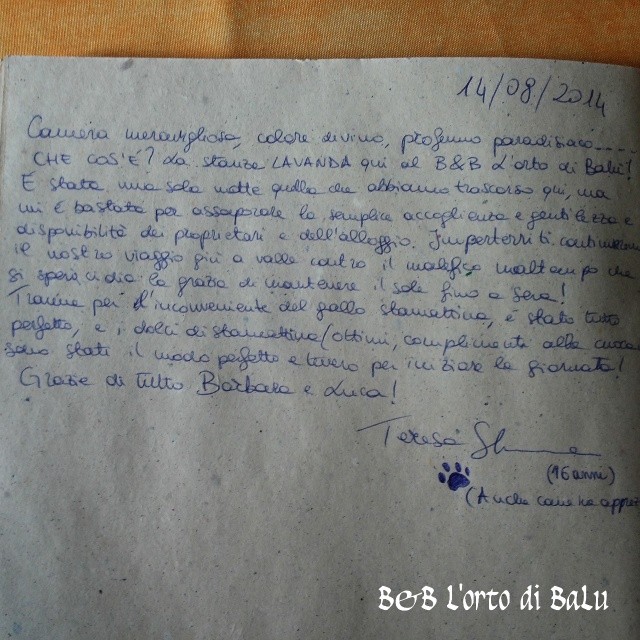 14/08/2014
Camera meravigliosa, colore divino, profumo paradisiaco.....
CHE COS'È? La stanza LAVANDA qui al B&B L'orto di Balù!
È stata una sola notte quella che abbiamo trascorso qui, ma
mi è bastata per assaporare la semplice accoglienza e gentilezza e
disponibilità dei proprietari e dell'alloggio. Imperterriti continuiamo
il nostro viaggio giù a valle contro il malefico maltempo che
si spera ci dia la grazia di mantenere il sole fino a sera!
Tranne per l'inconveniente del gallo stamattina, è stato tutto
perfetto, e i dolci di stamattina (ottimi, complimenti alla cuoca
sono stati il modo perfetto e tenero per iniziare la giornata!
Grazie di tutto Barbara e Luca!
Teresa
(16 anni)
(Anche cane ha apprez
B&B L'orto di BaLu